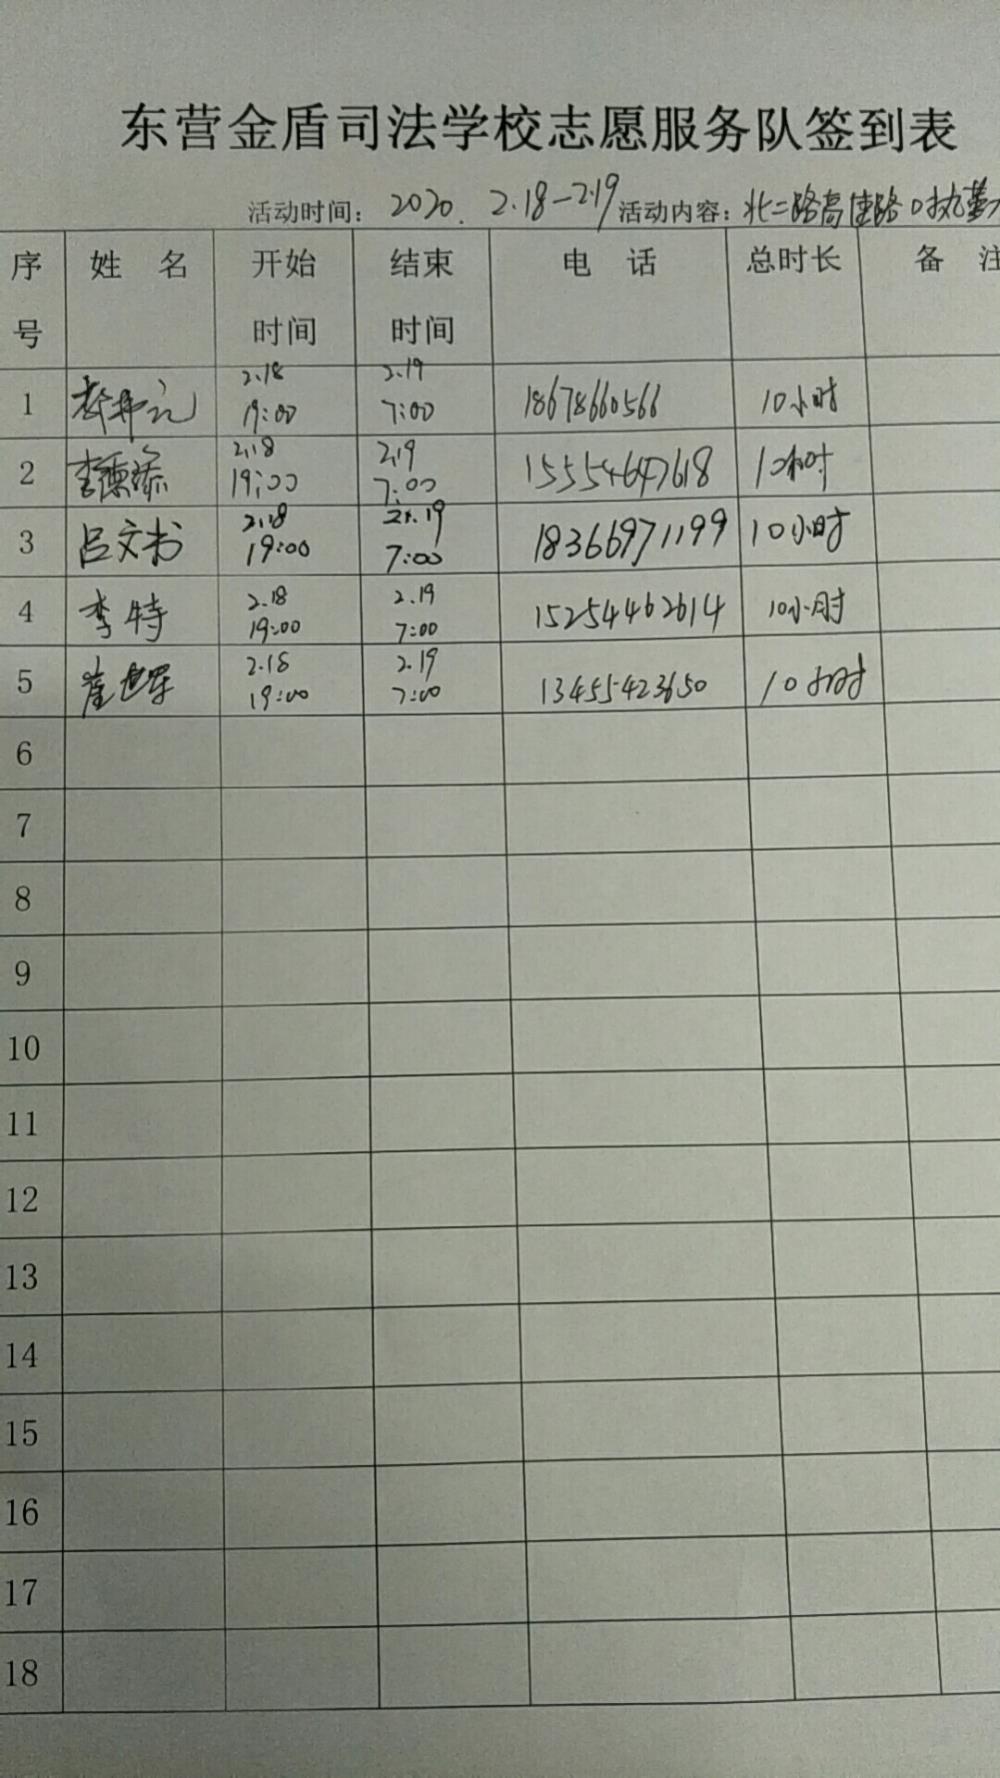 东营金盾司法学校志愿服务队签到表
活动时间：2020. 2.18—2.19 活动内容：北二路高速路口执勤
序号 姓 名 开始时间 结束时间 电 话 总时长 备 注
1 2.18 19:00 2.19 7:00 18678660566 10小时
2 李德添 2.18 19:00 2.19 7:00 15554647618 10小时
3 吕文书 2.18 19:00 2.19 7:00 18366971199 10小时
4 李特 2.18 19:00 2.19 7:00 15254462614 10小时
5 崔世军 2.18 19:00 2.19 7:00 13455423650 10小时
6
7
8
9
10
11
12
13
14
15
16
17
18